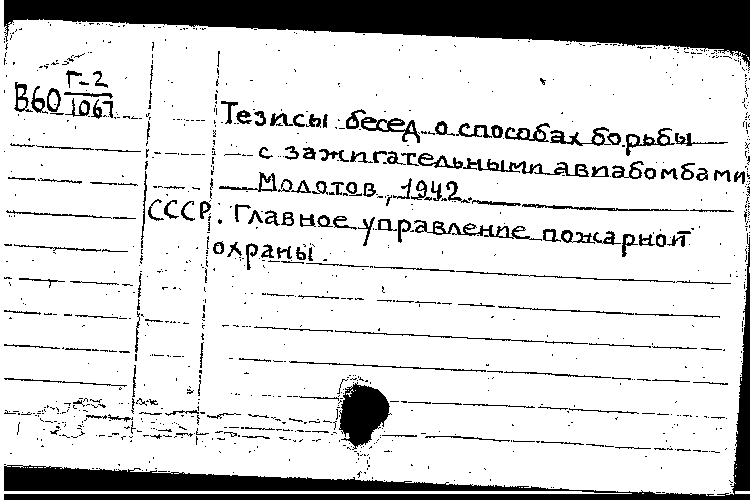 В60 Г-2/1067
Тезисы бесед о способах борьбы
с зажигательными авиабомбами
Молотов, 1942.
СССР. Главное управление пожарной
охраны.